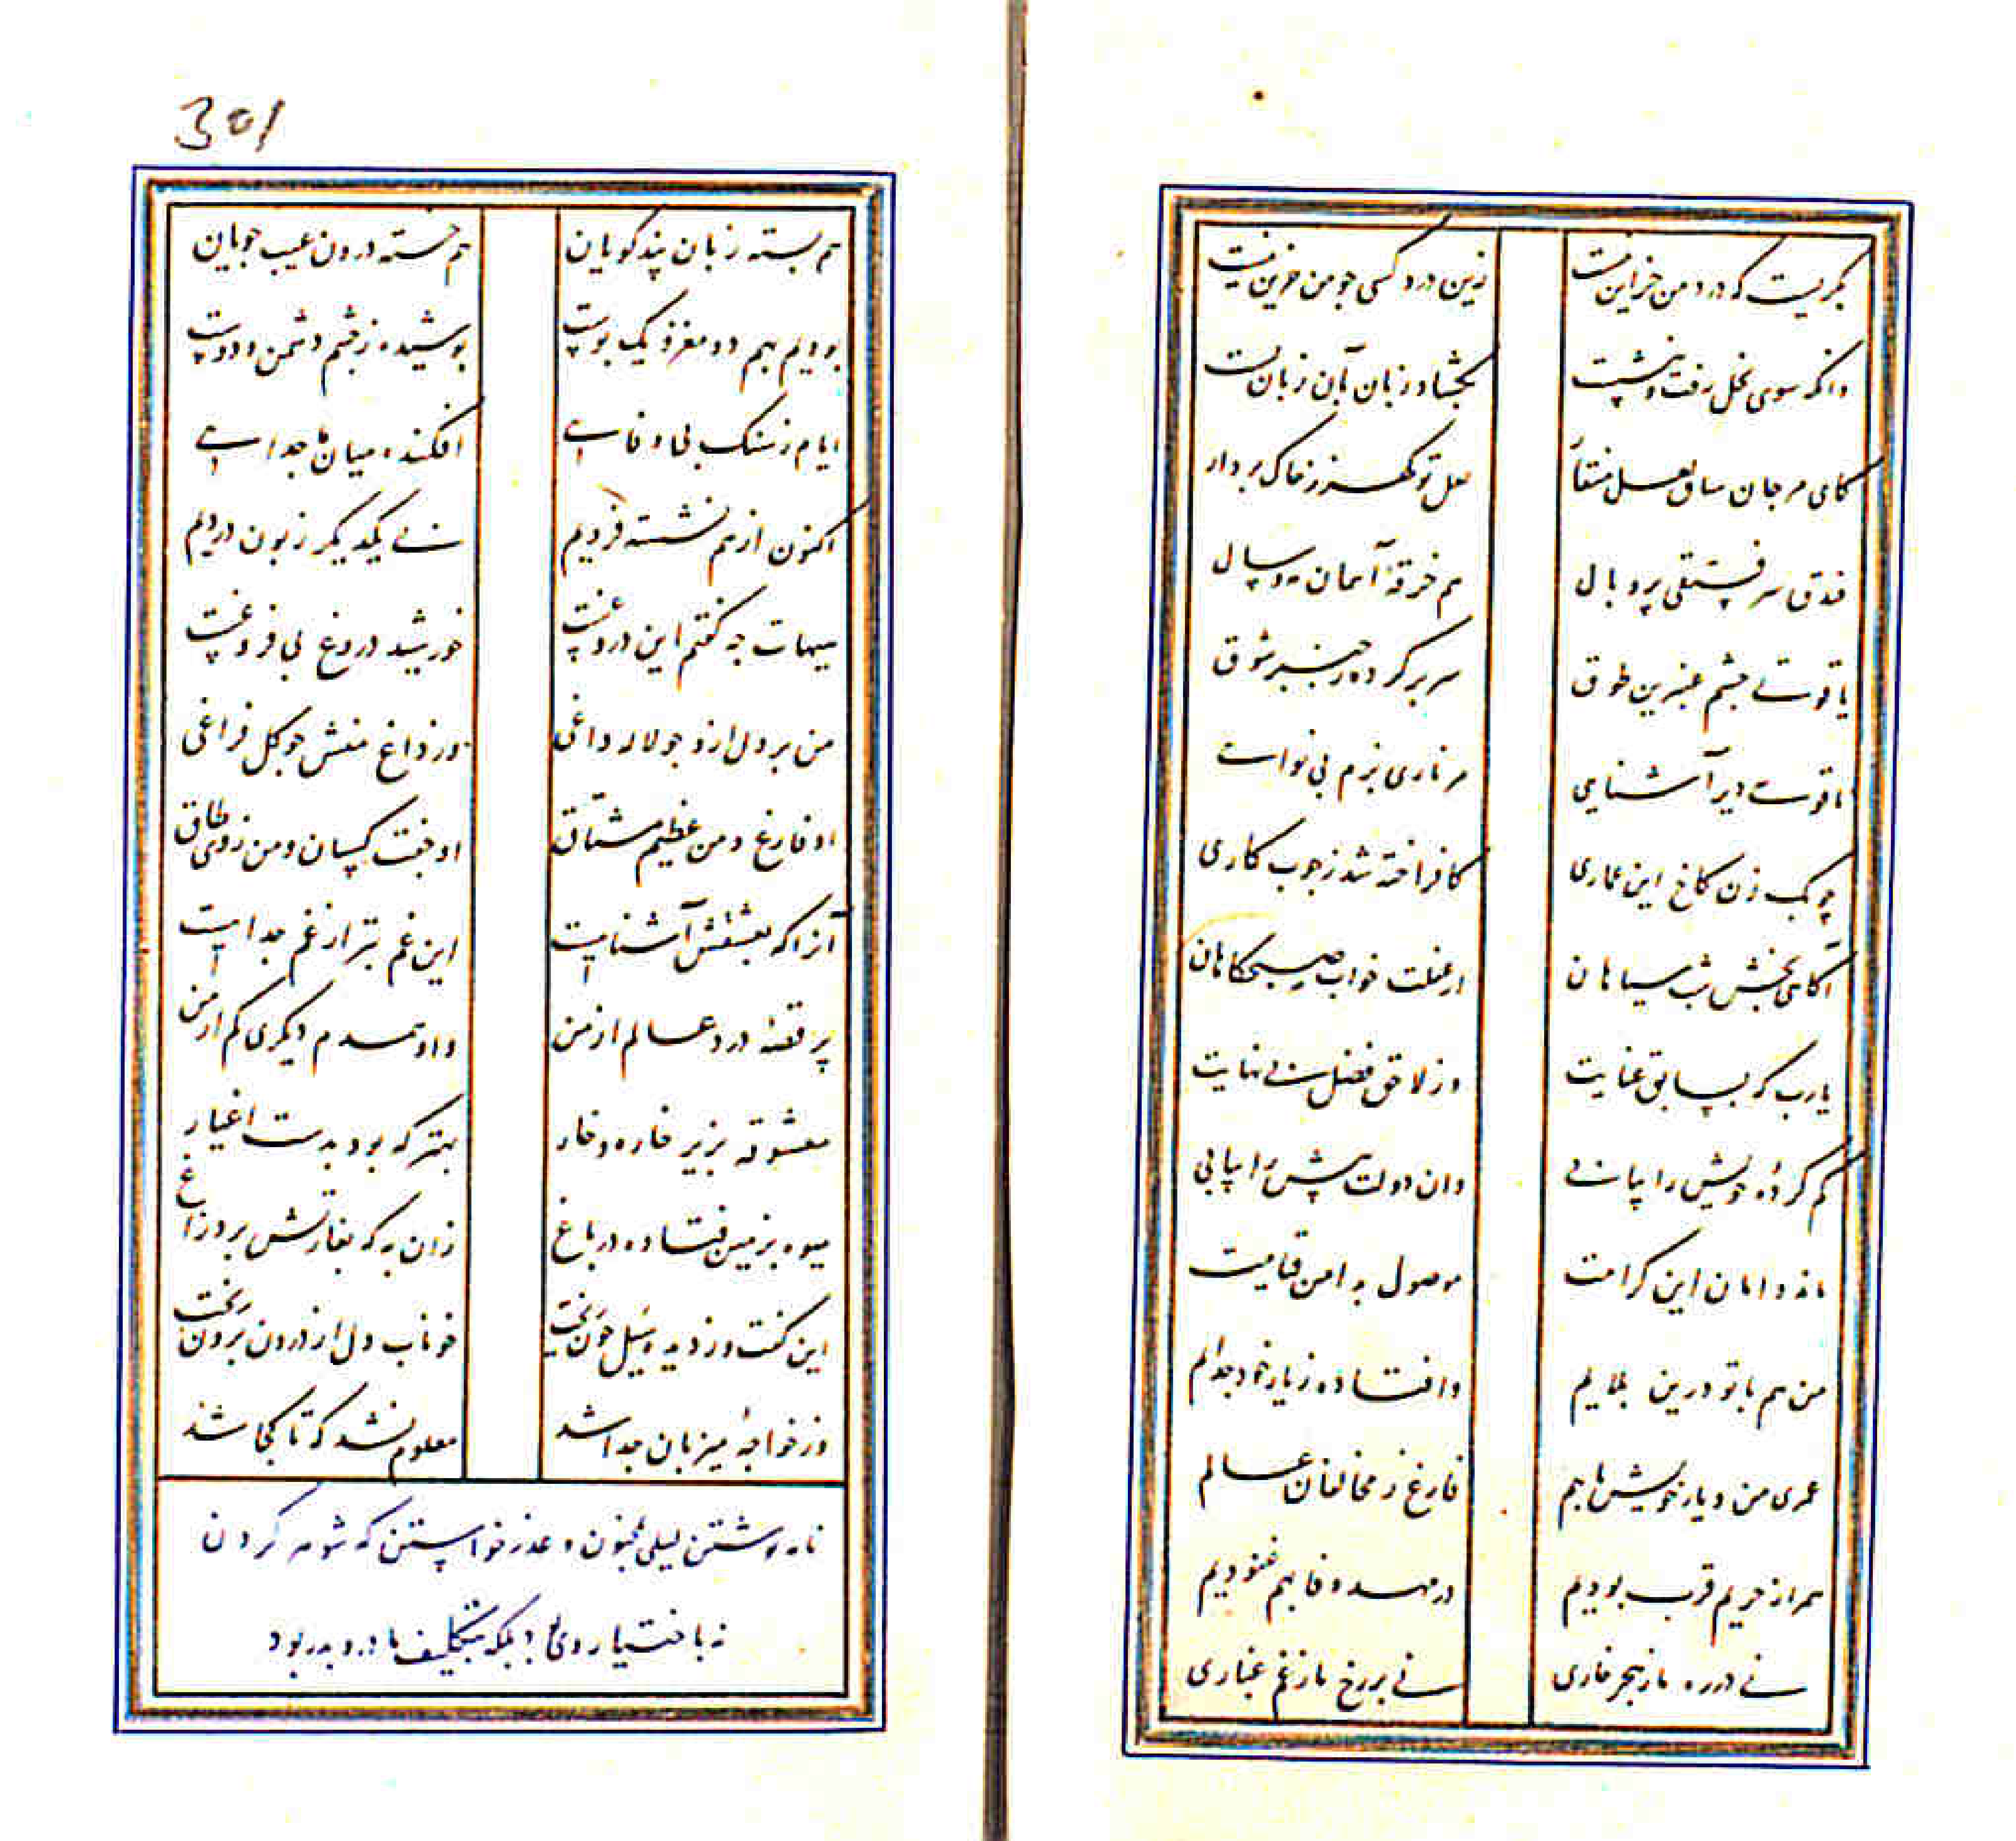 بگریست که درد من جز این نیست زین درد کسی چو من حزین نیست
وانگه سوی نخل رفت و بنشست بگشاد زبان بآن زبان بست
کای مرجان ساق لعل منقار لعل تو گهر ز خاک بردار
فندق سر فستقی پر و بال هم خرقهٔ آسمان مه و سال
یاقوتی چشم عنبرین طوق سر بر کرده ز چنبر شوق
ناقوسی دیر آشنایی مزماری بزم بی نوایی
چوبک زن کاخ این عماری کافراخته شد ز چوب کاری
آگاهی بخش شب سیاهان از غفلت خواب صبحگاهان
یارب که بسابق عنایت وز لاحق فضل بی نهایت
گم کردهٔ خویش را بیابی وان دولت پیش را بیابی
ماند دامان این کرامت موصول به دامن قیامت
من هم با تو درین بلایم وافتاده ز یار خود جدایم
عمری من و یار خویش با هم فارغ ز مخالفان عالم
همراز حریم قرب بودیم در مهد وفا بهم غنودیم
نی در ره ما ز هجر خاری نی بر رخ ما ز غم غباری
301
هم بسته زبان پند گویان هم خسته درون عیب جویان
بودیم بهم دو مغز و یک پوست پوشیده ز چشم دشمن و دوست
ایام ز سنگ بی وفایی افکنده میان ما جدایی
اکنون از هم نشسته فردیم بی یکدیگر زبون دردیم
هیهات چه گفتم این دروغست خورشید دروغ بی فروغست
من بر دل ازو چو لاله داغی وز داغ منش چو گل فراغی
او فارغ و من عظیم مشتاق او جفت کسان و من ز وی طاق
آنرا که بعشقش آشناییست این غم بتر از غم جداییست
پر قصهٔ درد عالم از من واو همدم دیگری کم از من
معشوقه بزیر خاره و خار بهتر که بود بدست اغیار
میوه بزمین فتاده در باغ زان به که بغارتش برد زاغ
این گفت و ز دیده سیل خون ریخت خوناب دل از درون برون ریخت
وز خواجهٔ میزبان جدا شد معلوم نشد که تا کجا شد
نامه نوشتن لیلی بمجنون و عذر خواستن که شوهر کردن
نه باختیار وی بود بلکه بتکلیف مادر و پدر بود